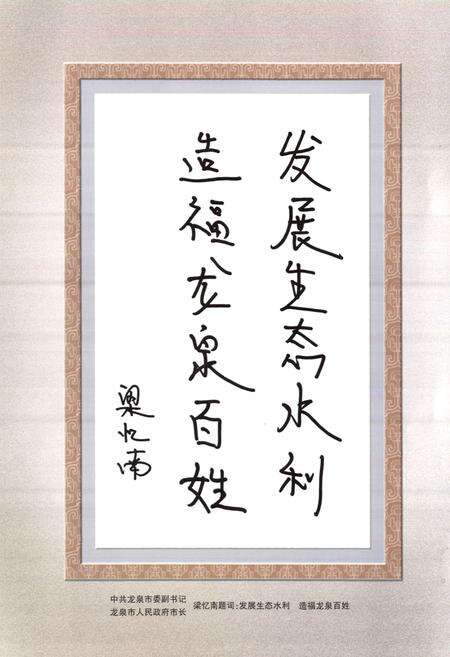 发展生态水利
造福龙泉百姓
梁忆南
中共龙泉市委副书记
龙泉市人民政府市长
梁忆南题词:发展生态水利 造福龙泉百姓